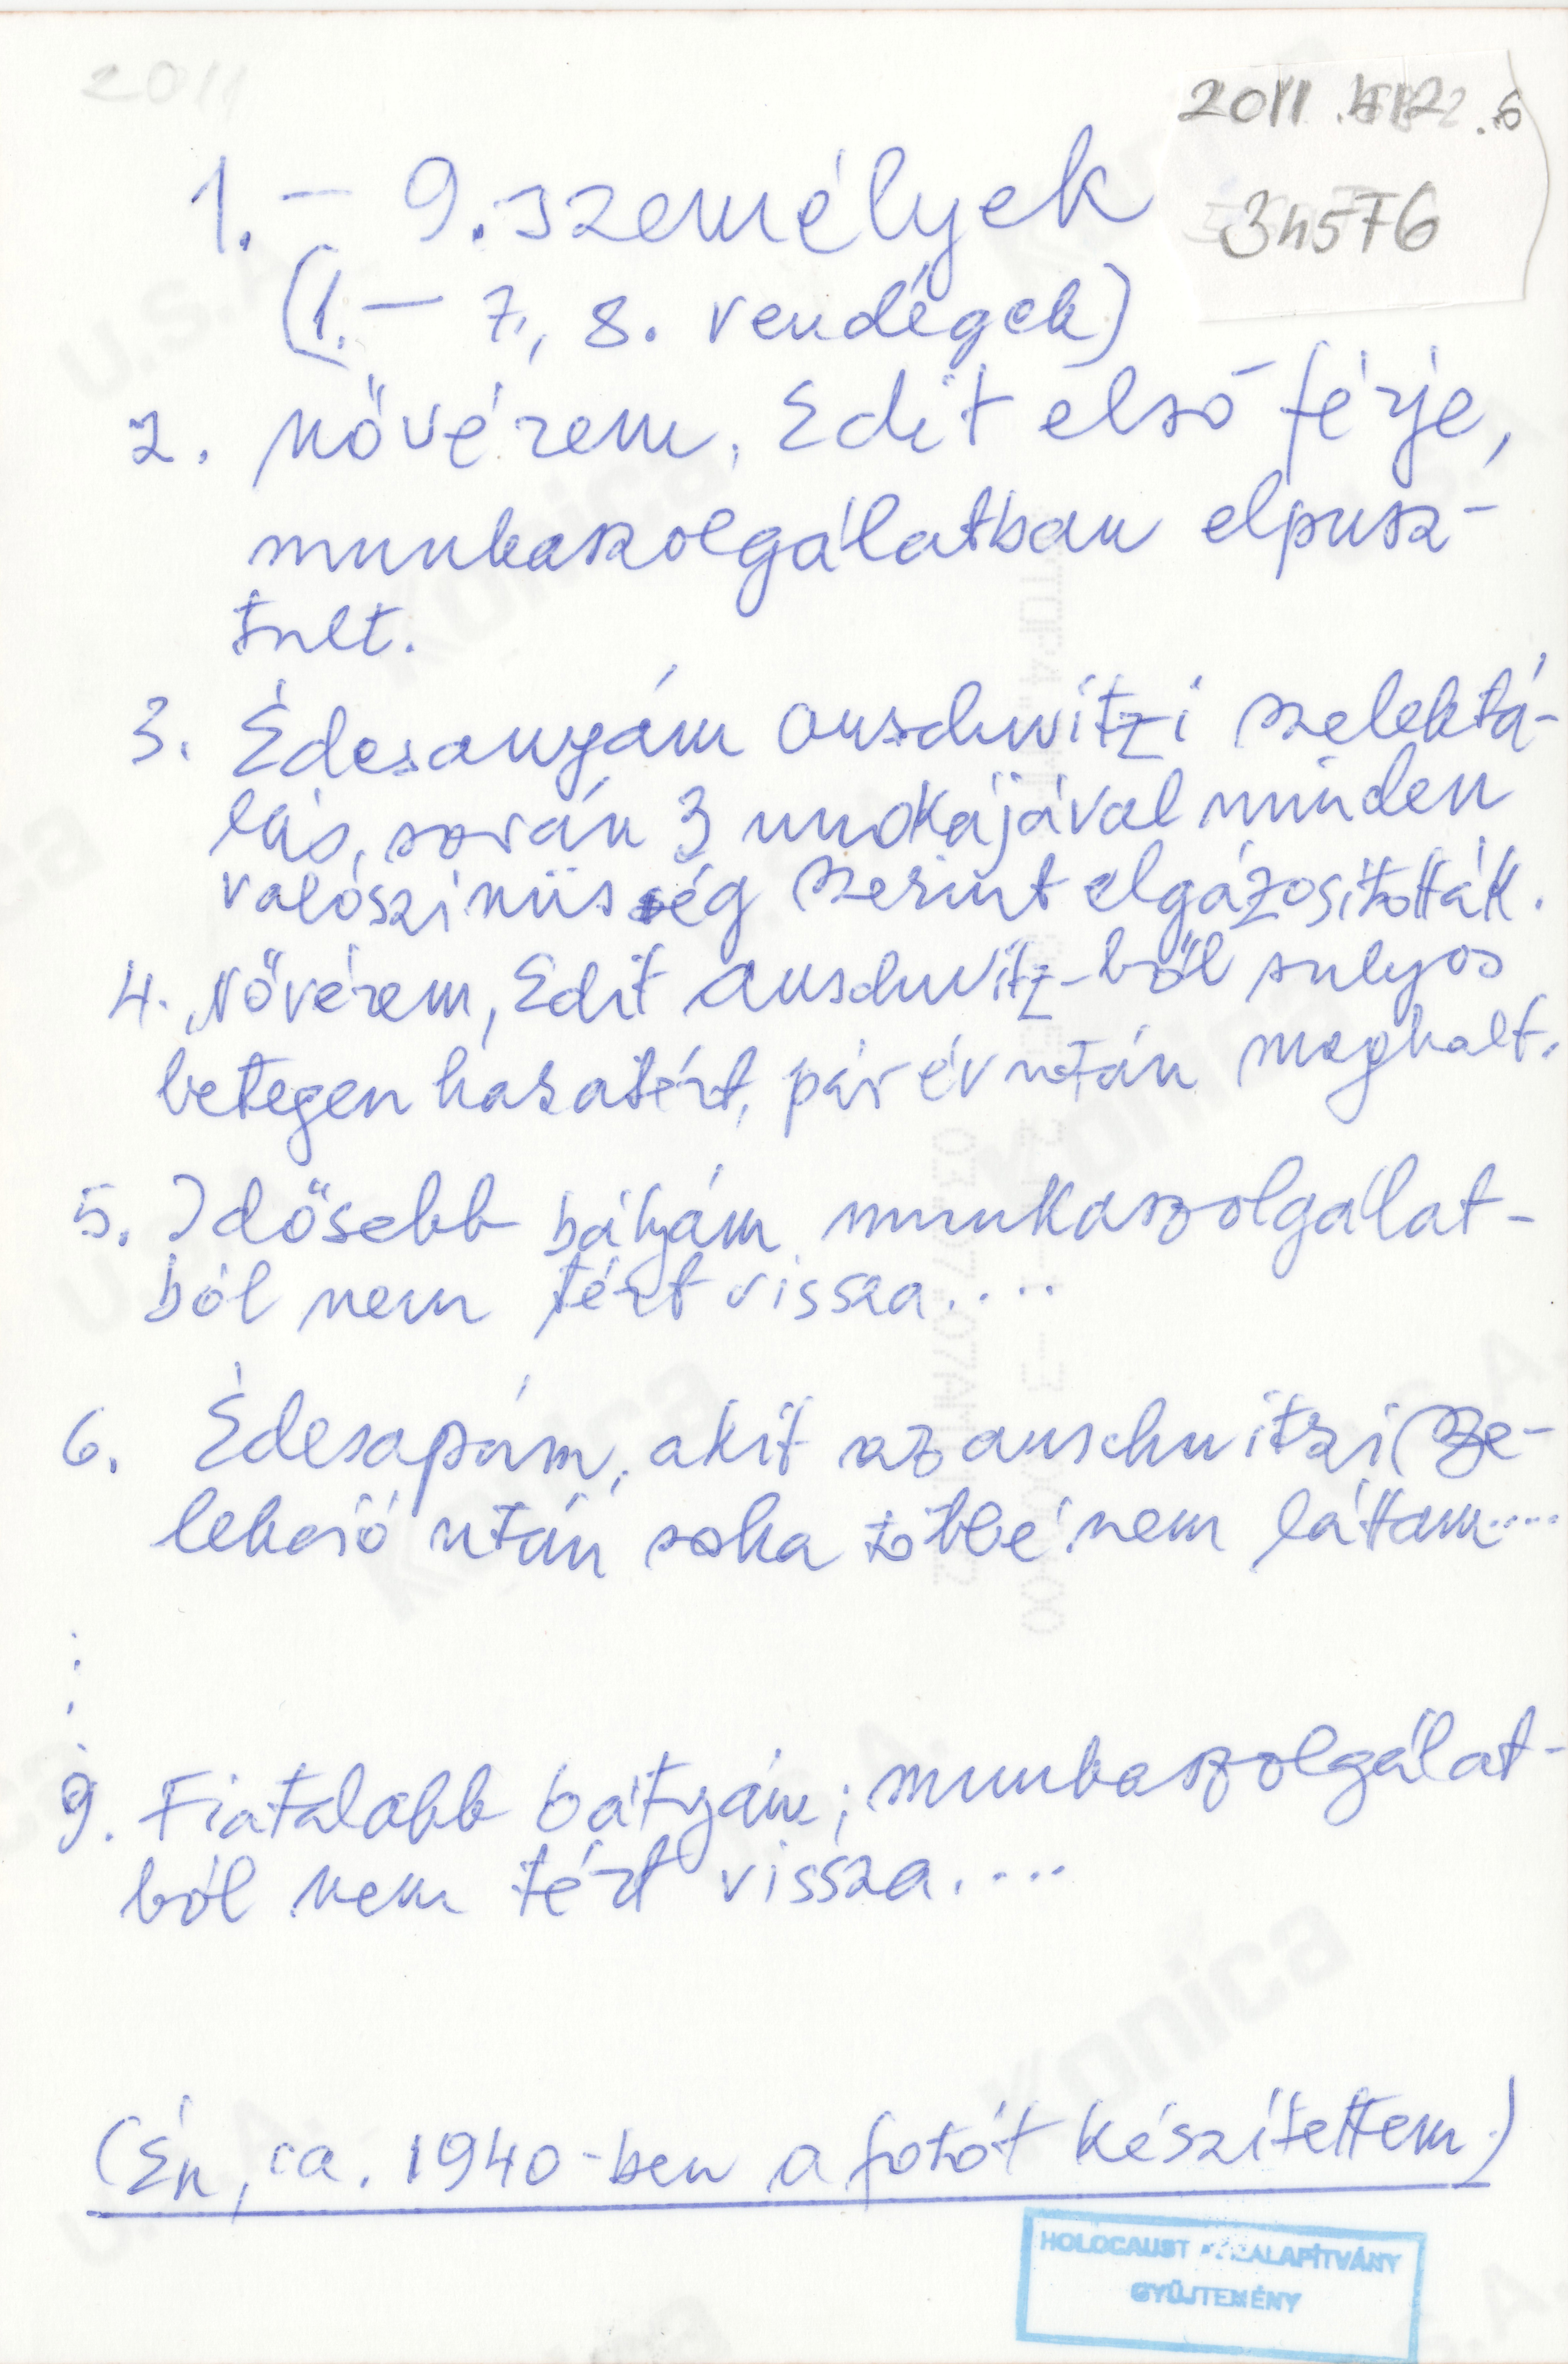 2011
2011. .6
34576
1. – 9. személyek
(1. – 7., 8. vendégek)
2. nővérem, Edit első férje,
munkaszolgálatban elpusz-
tult.
3. Édesanyám auschwitzi szelektá-
lás, során 3 unokájával minden
valószinüsség szerint elgázosították.
4. Nővérem, Edit Auschwitz-ből sulyos
betegen hazatért, pár év után meghalt.
5. Idősebb bátyám munkaszolgálat-
ból nem tért vissza....
6. Édesapám, akit az auschwitzi sze-
lekció után soha többé nem láttam....
9. Fiatalabb bátyám; munkaszolgálat-
ból nem tért vissza....
(Én, ca. 1940-ben a fotót készítettem)
HOLOCAUST KÖZALAPÍTVÁNY
GYŰJTEMÉNY